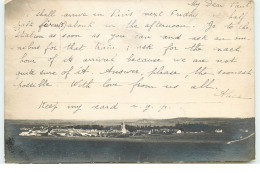 My dear Paul
I shall arrive in Paris next Friday half
past four about in the afternoon. Go to the
Station as soon as you can and ask an om
nibus for that train. I ask for the exact
hour of its arrival because we are not
quite sure of it. Answer, please the soonest
possible. With love from us all.
Alice
Keep my card